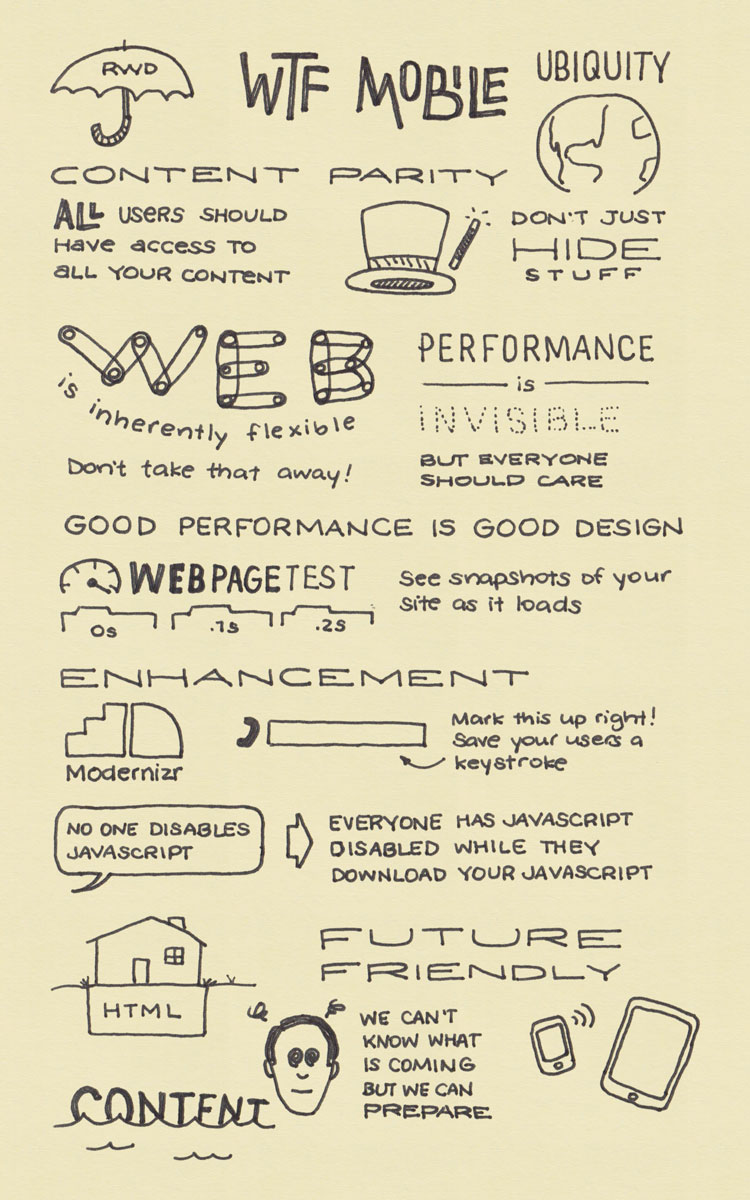 RWD
WTF MOBILE
UBIQUITY
CONTENT PARITY
ALL USERS SHOULD
Have access to
all your content
DON'T JUST
HIDE
STUFF
WEB
is inherently flexible
Don't take that away!
PERFORMANCE
is
INVISIBLE
BUT EVERYONE
SHOULD CARE
GOOD PERFORMANCE IS GOOD DESIGN
WEBPAGETEST
0s
.1s
.2s
See snapshots of your
site as it loads
ENHANCEMENT
Modernizr
Mark this up right!
Save your users a
keystroke
NO ONE DISABLES
JAVASCRIPT
EVERYONE HAS JAVASCRIPT
DISABLED WHILE THEY
DOWNLOAD YOUR JAVASCRIPT
HTML
FUTURE
FRIENDLY
WE CAN'T
KNOW WHAT
IS COMING
BUT WE CAN
PREPARE
CONTENT